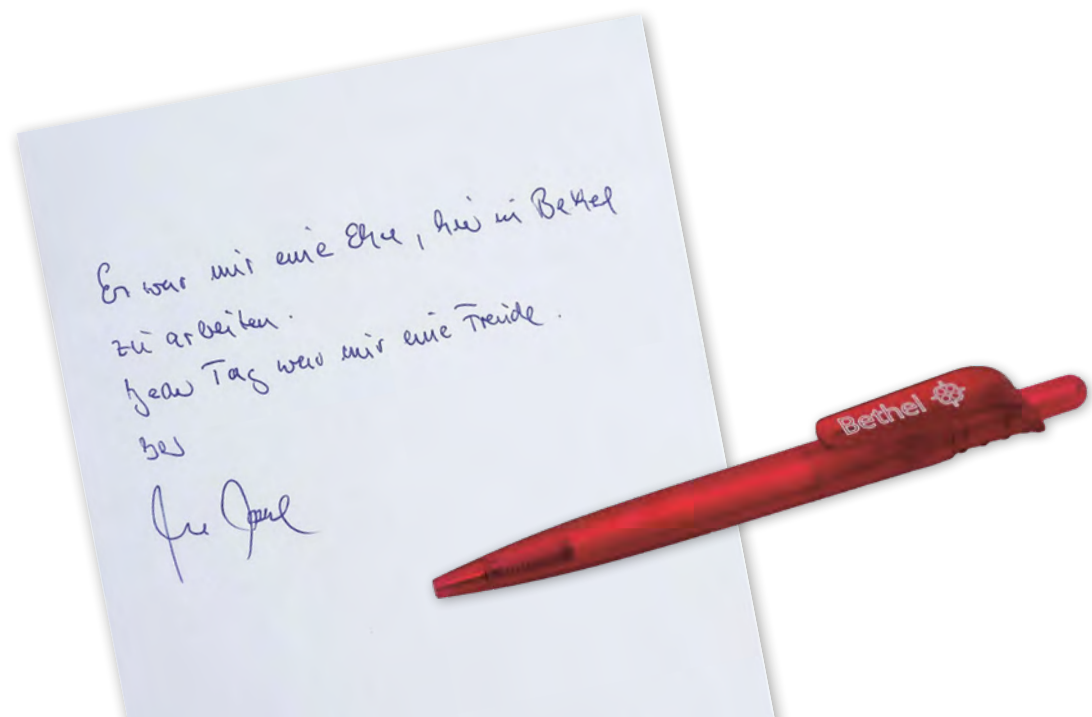 Es war mir eine Ehre, hier in Bethel
zu arbeiten.
Jeder Tag war mir eine Freude.
Bethel